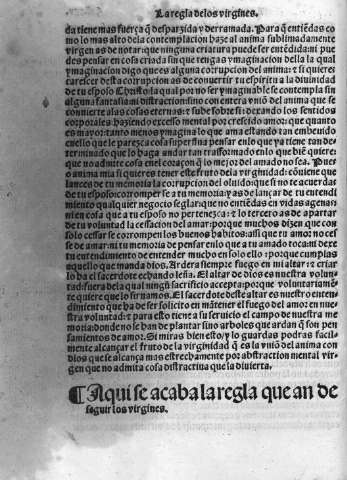 La regla de los virgines.
da tiene mas fuerça q̄ desparzida y derramada. Para q̄ entiēdas co
mo lo mas alto dela contemplacion haze al anima sublimadamente
virgen as de notar: que ninguna criatura puede ser entēdida: ni pue
des pensar en cosa criada sin que tengas ymaginacion della la qual
ymaginacion digo que es alguna corrupcion del anima: z si quieres
carescer desta corrupcion as de conuertir tu espiritu a la diuinidad
de tu esposo Christo la qual por no ser ymaginable se contempla sin
alguna fantasia ni distraction: sino con entera vniō del anima que se
conuierte alas cosas eternas: z sube sobre si: dexando los sentidos
corporales: haziendo excesso mental por crescido amor: que quanto
es mayor: tanto menos ymagina lo que ama estando tan embeuido
enello que le paresce cosa superflua pensar enlo que ya tiene tan de
terminado que lo haga andar tan trasformado enlo que biē quiere:
que no admite cosa enel coraçon q̄ lo mejor del amado no sea. Pues
o anima mia si quieres tener este fruto dela virginidad: cōuiene que
lances de tu memoria la corrupcion del oluido: que si no te acuerdas
de tu esposo: corrompese a tu memoria y as de lançar de tu entendi
miento qualquier negocio seglar: que no entiēdas en vidas agenas:
ni en cosa que a tu esposo no pertenezca: z lo tercero as de apartar
de tu voluntad la cessacion del amar: porque muchos dizen que con
solo cessar se corrompen los buenos habitos: assi que tu amor no ces
se de amar: ni tu memoria de pensar enlo que a tu amado toca: ni dexe
tu entendimiento de entender mucho en solo ello: porque cumplas
aquello que manda dios. Ardera siempre fuego en mi altar z criar
lo ha el sacerdote echando leña. El altar de dios es nuestra volun
tad: fuera dela qual ningū sacrificio accepta: porque voluntariamē
te quiere que lo siruamos. El sacerdote deste altar es nuestro enten
dimiento que ha de ser solicito en mātener el fuego del amor en nue
stra voluntad: z para esto tiene a su seruicio el campo de nuestra me
moria: donde no se han de plantar sino arboles que ardan q̄ son pen
samientos de amor. Si miras bien esto/y lo guardas podras facil-
mente alcançar el fruto dela virginidad q̄ es la vniō del anima con
dios que se alcança mas estrechamente por abstraction mental vir-
gen que no admita cosa distractiua que la diuierta.
¶Aqui se acaba la regla que an de
seguir los virgines.